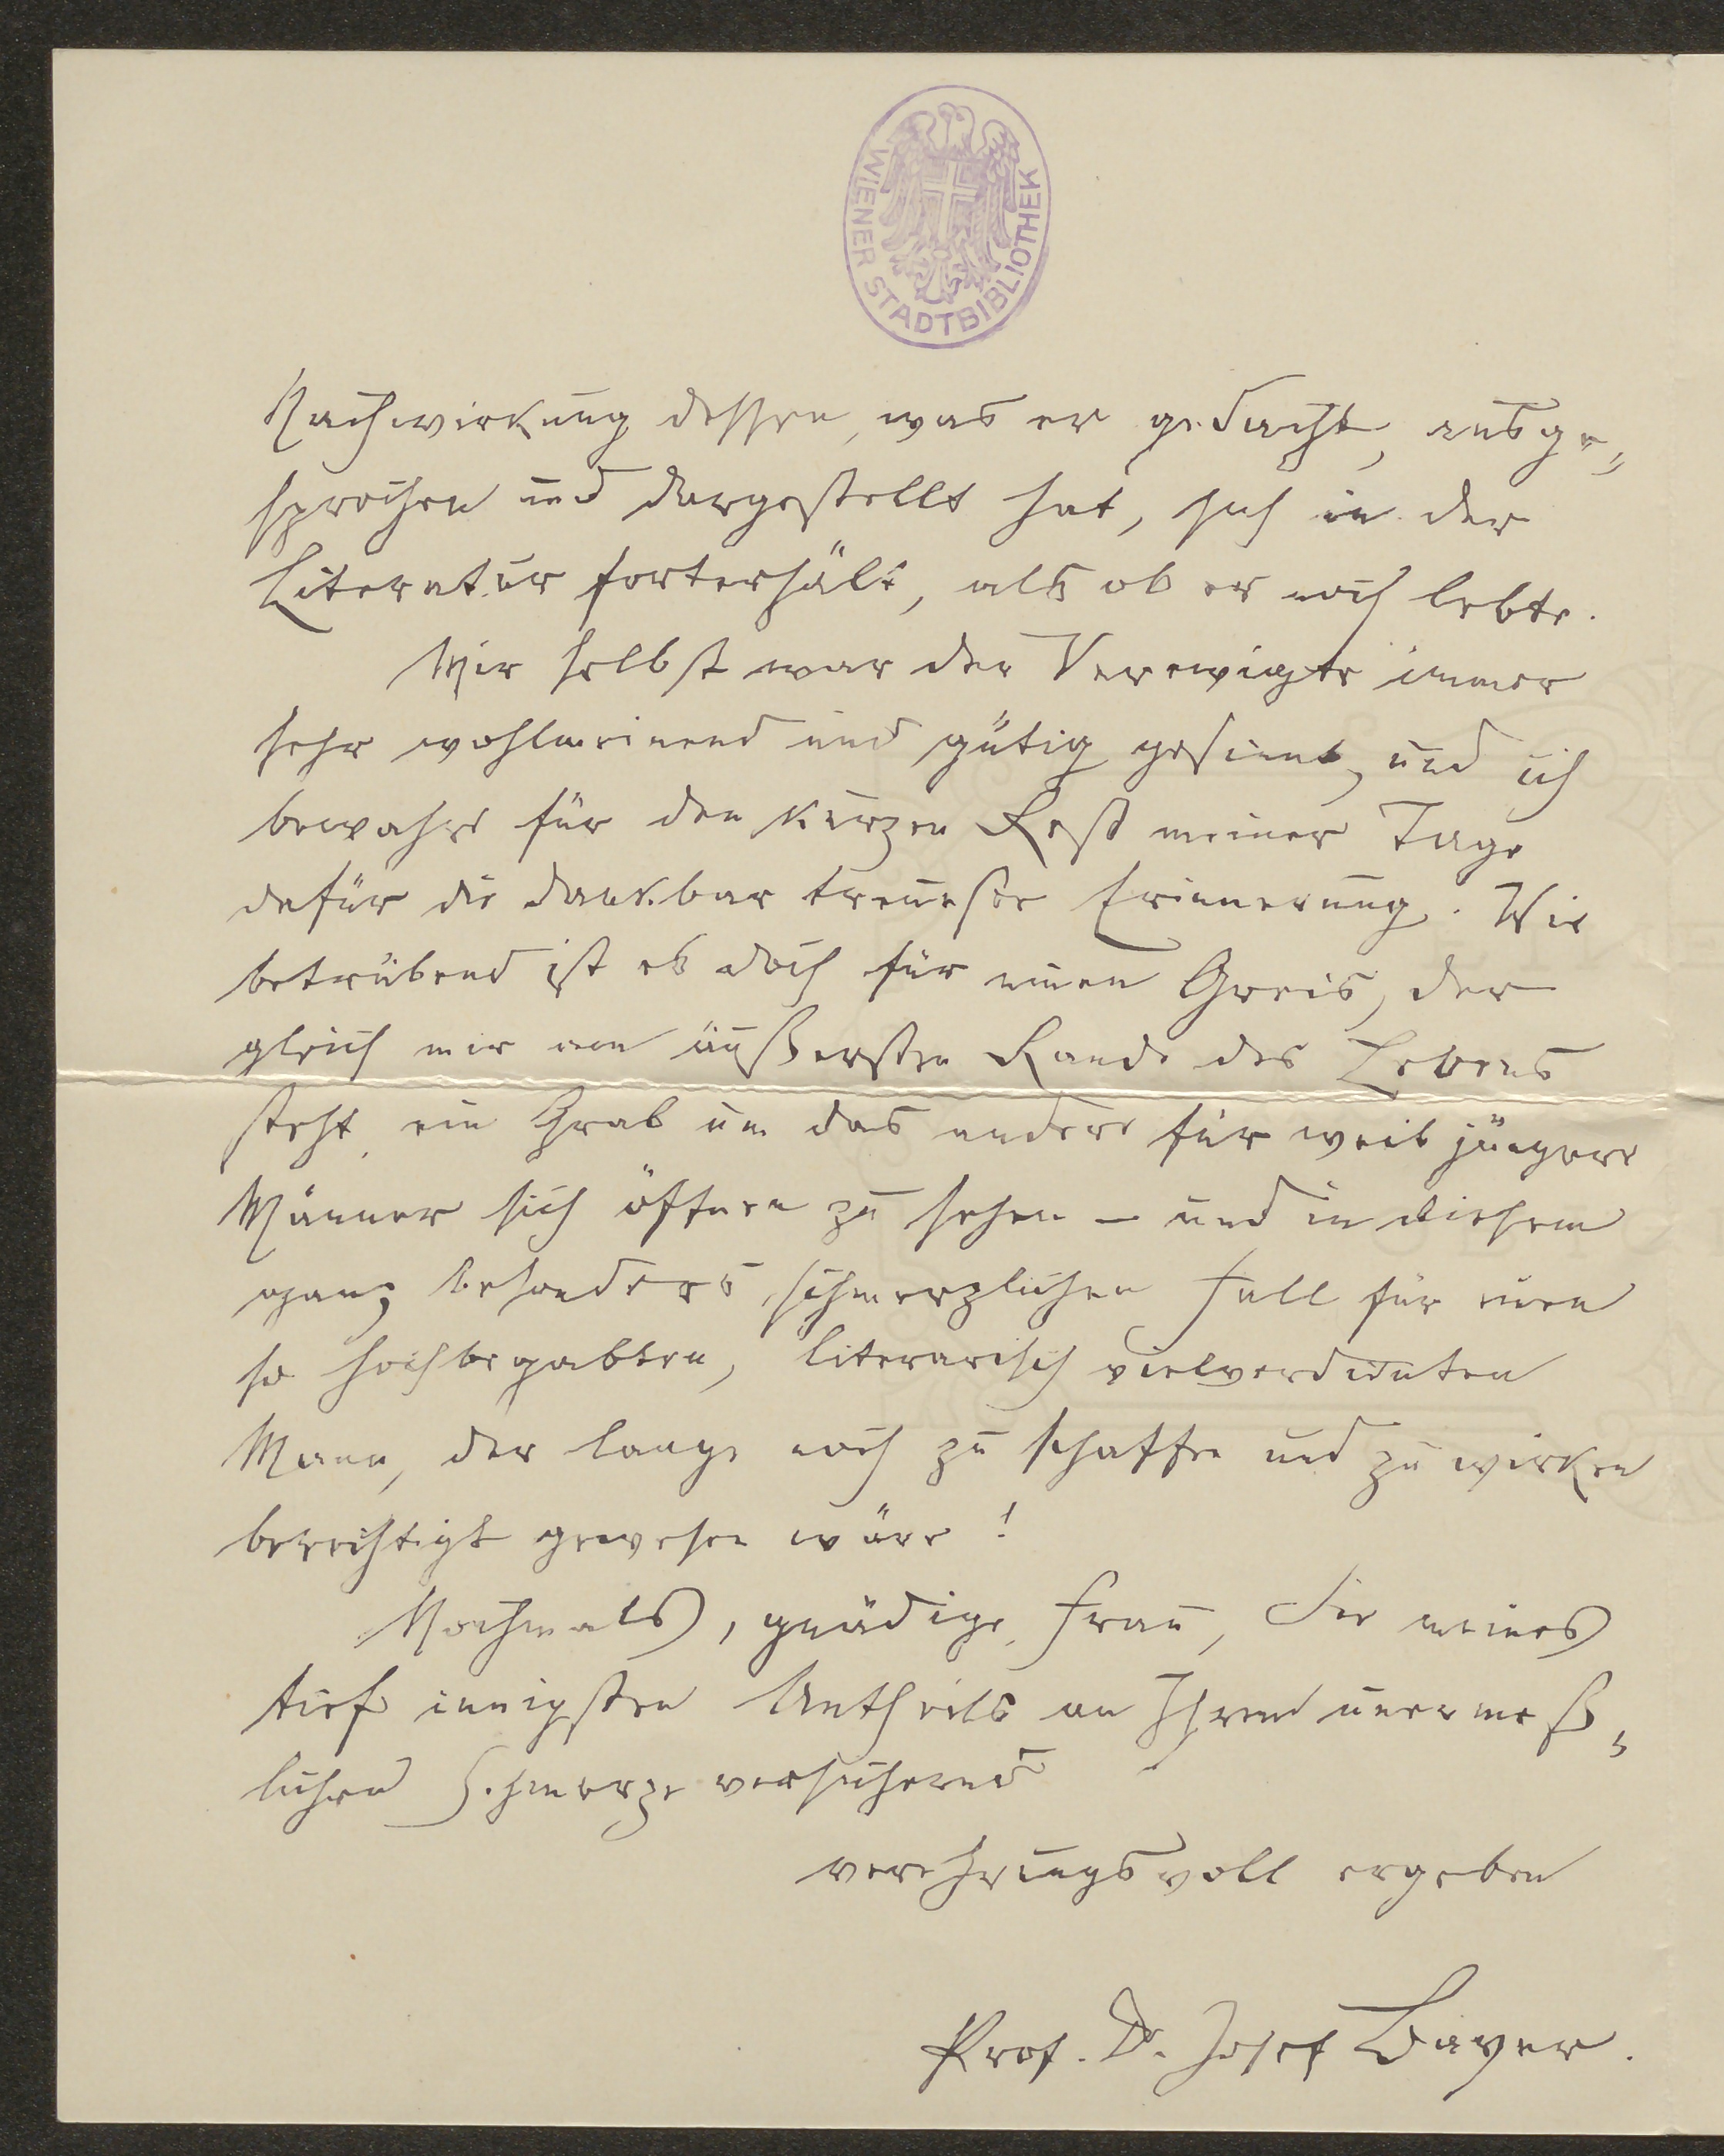 WIENER STADTBIBLIOTHEK
Nachwirkung dessen, was er gedacht, ausge„
sprochen und dargestellt hat, sich in der
Literatur forterhält, als ob er noch lebte.
Mir selbst war der Verewigte immer
sehr wohlmeinend und gütig gesinnt, und ich
bewahre für den kurzen Rest meiner Tage
dafür die dankbar treueste Erinnerung. Wie
betrübend ist es doch für einen Greis, der
gleich mir am äußersten Rande des Lebens
steht, ein Grab um das andere für weit jüngere
Männer sich öffnen zu sehen – und in diesem
ganz besonders schmerzlichen Fall für einen
so hochbegabten, literarisch vielverdienten
Mann, der lange noch zu schaffen und zu wirken
berechtigt gewesen wäre!
Nochmals, gnädige Frau, Sie meines
tief innigsten Antheils an Ihrem unermeß„
lichen Schmerze versichernd
verehrungsvoll ergeben
Prof. Dr. Josef Bayer.